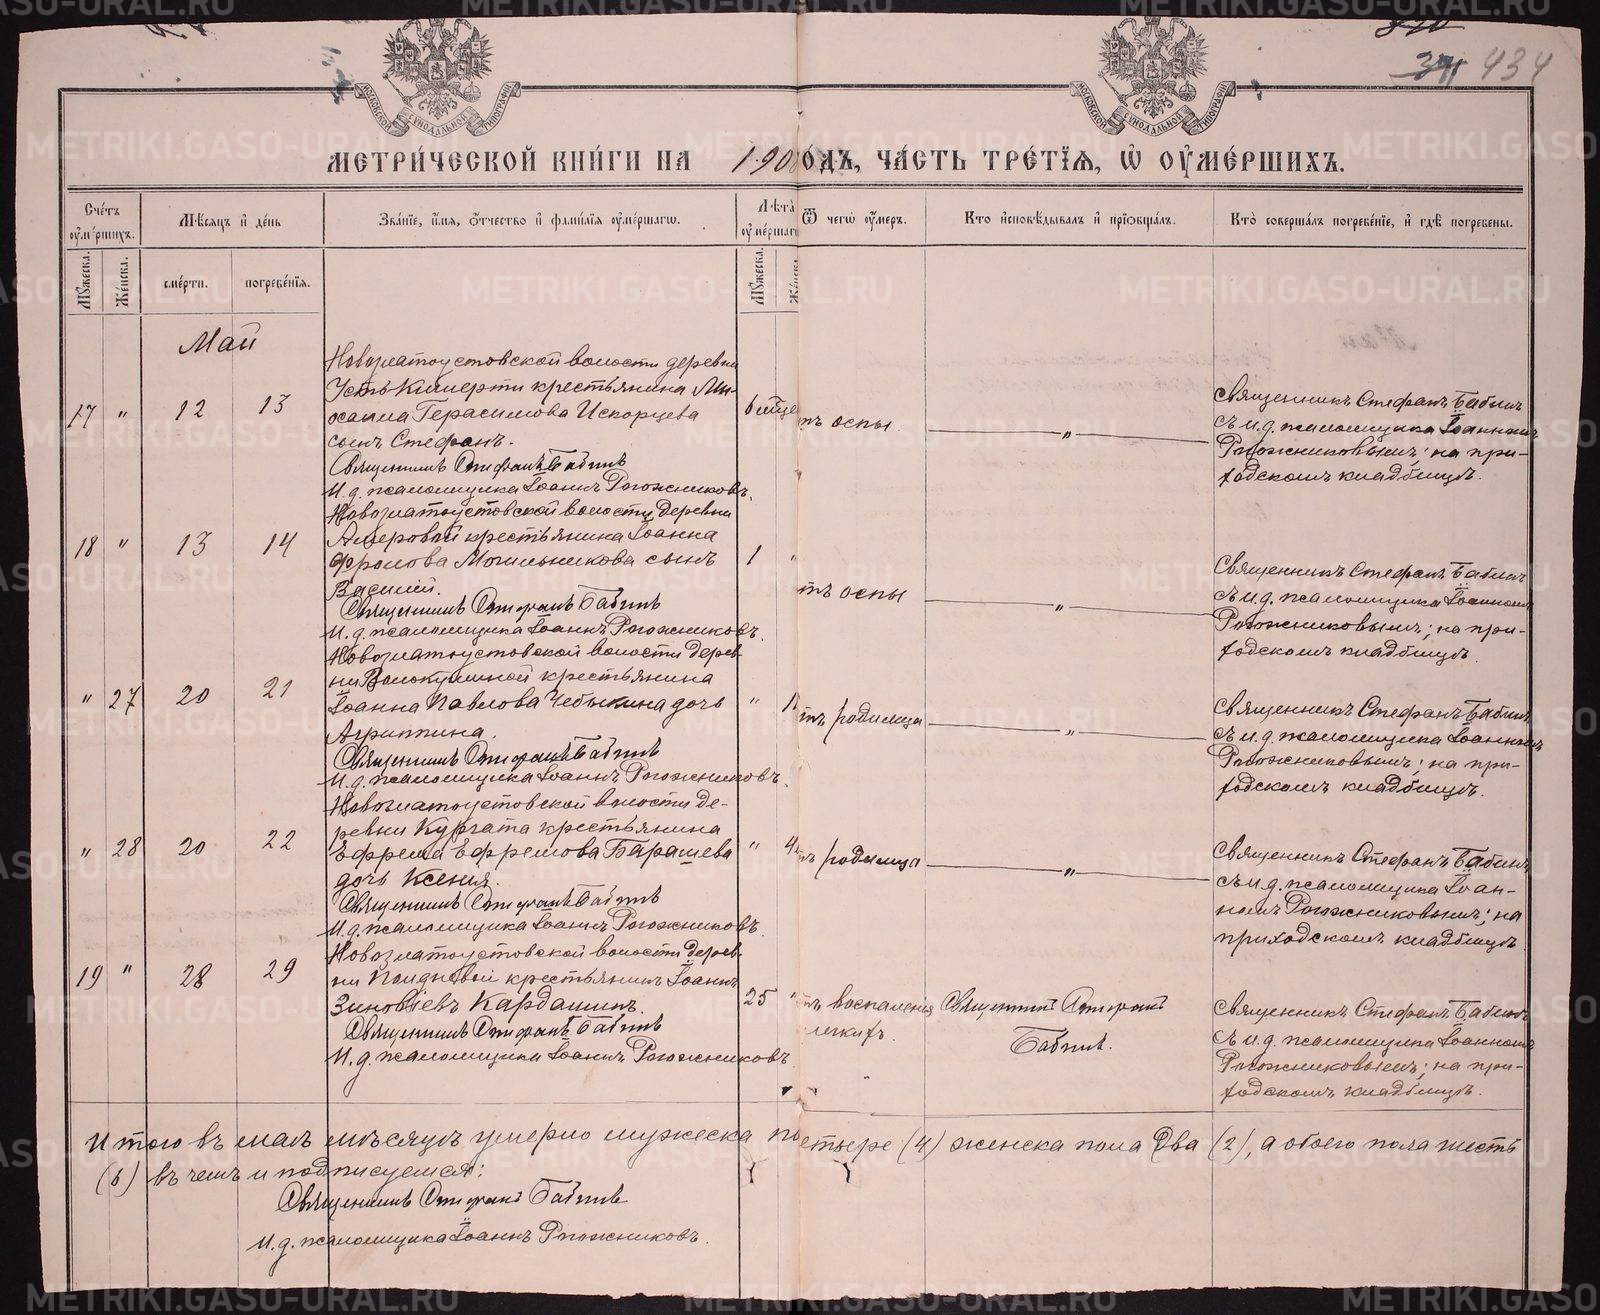 434
МЕТРИ́ЧЕСКОЙ КНИ́ГИ НА 190 ОДЪ, ЧА́СТЬ ТРЕ́ТІѦ, Ѡ ОУ҆МЕ́РШИХЪ.
Сче́тъ оумершихъ.
Мѣ́сяцъ и де́нь
Зва́ніе, и́мя, ѻ́тчество и фами́лія оуме́ршагѡ.
Лѣта̀ оуме́ршагѡ
Ѿ чегѡ̀ оу́меръ.
Кто̀ исповѣ́дывалъ и прїѡбща́лъ.
Кто̀ соверша́лъ погребе́ніе, и гдѣ̀ погребены.
Му́жеска. Же́нска.
сме́рти. погребе́нія.
Му́жеска. Же́нска.
Май
17 " 12 13
Новозлатоустовской волости деревни
Усть Кишерти крестьянина Ми-
хаила Герасимова Искорцева
сынъ Стефанъ.
Священникъ Стефанъ Бабинъ
И.д. псаломщика Іоаннъ Рогожниковъ.
6 мѣсе
тъ оспы.
"
Священникъ Стефанъ Бабинъ
съ и.д. псаломщика Іоанномъ
Рогожниковымъ; на при-
ходскомъ кладбищѣ.
18 " 13 14
Новозлатоустовской волости деревни
крестьянина Іоанна
Фролова Могильникова сынъ
Василій.
Священникъ Стефанъ Бабинъ
И.д. псаломщика Іоаннъ Рогожниковъ.
1 "
тъ оспы
"
Священникъ Стефанъ Бабинъ
съ и.д. псаломщика Іоанномъ
Рогожниковымъ; на при-
ходскомъ кладбищѣ.
" 27 20 21
Новозлатоустовской волости дерев-
ни Волокушиной крестьянина
Іоанна Павлова Чебыкина дочь
Агриппина.
Священникъ Стефанъ Бабинъ
И.д. псаломщика Іоаннъ Рогожниковъ.
" 1
тъ родимца
"
Священникъ Стефанъ Бабинъ
съ и.д. псаломщика Іоанномъ
Рогожниковымъ; на при-
ходскомъ кладбищѣ.
" 28 20 22
Новозлатоустовской волости де-
ревни Кургата крестьянина
Ефрема Ефремова Барашева
дочь Ксенія.
Священникъ Стефанъ Бабинъ
И.д. псаломщика Іоаннъ Рогожниковъ.
" 4
тъ родимца
"
Священникъ Стефанъ Бабинъ
съ и.д. псаломщика Іоан-
номъ Рогожниковымъ; на
приходскомъ кладбищѣ.
19 " 28 29
Новозлатоустовской волости дерев-
ни крестьянинъ Іоаннъ
Зиновіевъ Кардашинъ.
Священникъ Стефанъ Бабинъ
И.д. псаломщика Іоаннъ Рогожниковъ
25 "
тъ воспаленія
легкихъ.
Священникъ Стефанъ
Бабинъ.
Священникъ Стефанъ Бабинъ
съ и.д. псаломщика Іоанномъ
Рогожниковымъ; на при-
ходскомъ кладбищѣ.
Итого въ маѣ мѣсяцѣ умерло мужеска по етыре (4) женска пола два (2), а обоего пола шесть
(6) въ чемъ и подписуемся:
Священникъ Стефанъ Бабинъ
И.д. псаломщика Іоаннъ Рогожниковъ.